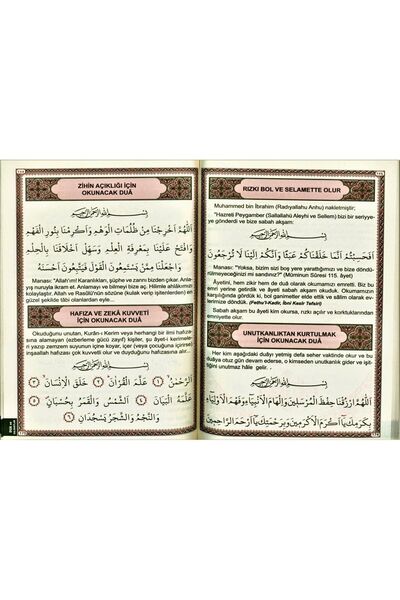 ZİHİN AÇIKLIĞI İÇİN
OKUNACAK DUÂ
اَللّٰهُمَّ اَخْرِجْنَا مِنْ ظُلُمَاتِ الْوَهْمِ وَاَكْرِمْنَا بِنُورِ الْفَهْمِ
وَافْتَحْ عَلَيْنَا بِمَعْرِفَةِ الْعِلْمِ وَسَهِّلْ اَخْلَاقَنَا بِالْحِلْمِ
وَاجْعَلْنَا مِمَّنْ يَسْتَمِعُونَ الْقَوْلَ فَيَتَّبِعُونَ اَحْسَنَهُ
Manası: "Allah'ım! Karanlıktan, şüphe ve zandan bizleri çıkar. Anlamayı
nuruyla ikram et. Anlamayı ve bilmeyi bize aç. Hilimle ahlâkımızı
kolaylaştır. Allah ve Rasûlü'nün sözünü (kulak verip işitenlerden) en
güzel şekilde tâbi olanlardan eyle...
HAFIZA VE ZEKÂ KUVVETİ
İÇİN OKUNACAK DUÂ
Okuduğunu unutan, Kurân-ı Kerim veya herhangi bir ilmi hafıza-
sına alamayan (ezberleme gücü zayıf) kişiler, şu âyet-i kerimele-
ri yazıp zemzem suyuna koyar, içer (veya çocuğuna içirirse)
inşaallah hafızası çok kuvvetli olur ve duyduğunu hafızasına alır...
اَلرَّحْمٰنُ ﴿١﴾ عَلَّمَ الْقُرْاٰنَ ﴿٢﴾ خَلَقَ الْاِنْسَانَ ﴿٣﴾
عَلَّمَهُ الْبَيَانَ ﴿٤﴾ اَلشَّمْسُ وَالْقَمَرُ بِحُسْبَانٍ ﴿٥﴾
وَالنَّجْمُ وَالشَّجَرُ يَسْجُدَانِ ﴿٦﴾
RIZKI BOL VE SELAMETTE OLUR
Muhammed bin İbrahim (Radıyallahu Anhu) nakletmiştir;
"Hazreti Peygamber (Sallallahü Aleyhi ve Sellem) bizi bir seriyye-
ye gönderdi ve bize sabah akşam:
اَفَحَسِبْتُمْ اَنَّمَا خَلَقْنَاكُمْ عَبَثًا وَاَنَّكُمْ اِلَيْنَا لَا تُرْجَعُونَ
Manası: "Yoksa, bizim sizi boş yere yarattığımızı ve bize döndü-
rülmeyeceğinizi mi sandınız?" (Müminun Sûresi 115. âyet)
Âyetini, hem zikir hem de duâ olarak okumamızı emretti. Biz bu
emri yerine getirdik ve âyeti sabah akşam okuduk. Okumamızın
karşılığında gördük ki, bol ganimetler elde ettik ve sâlim olarak ev-
lerimize döndük. (Fethu'l-Kadir, İbni Kesir Tefsiri)
Sabah akşam bu âyeti kim okursa, rızkı açılır ve korktuklarından
emniyette olur.
UNUTKANLIKTAN KURTULMAK
İÇİN OKUNACAK DUÂ
Her kim aşağıdaki duâyı yetmiş defa seher vaktinde okur ve bu
duâya otuz gün devam ederse, o kimseden unutkanlık gider ve işit-
tiğini unutmaz hâle gelir.
اَللّٰهُمَّ ارْزُقْنَا حِفْظَ الْمُرْسَلِينَ وَاِلْهَامَ الْاَنْبِيَاءِ وَفَهْمَ الْاَوْلِيَاءِ
بِكَرَمِكَ يَا اَكْرَمَ الْاَكْرَمِينَ وَبِرَحْمَتِكَ يَا اَرْحَمَ الرَّاحِمِينَ